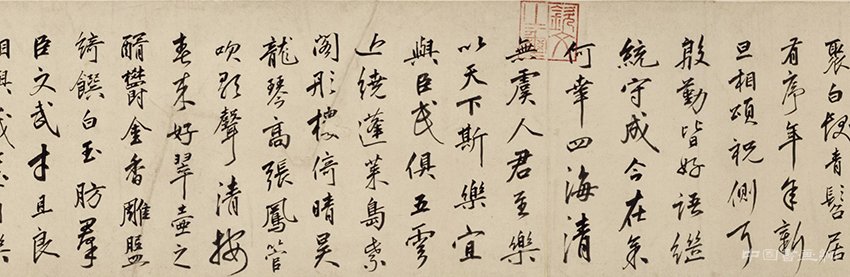 聚白叟青髫居
有序年年新
旦相頌祝側耳
殷勤皆好語繼
統守成今在余
何幸四海清
無虞人君至樂
以天下斯樂宜
與臣民俱五雲
上繞蓬萊島紫
閣彤樓倚晴昊
龍琴高張鳳管
吹歌聲清按
春來好翠壺之
醑欝金香雕盤
綺饌白玉肪羣
臣文武才且良